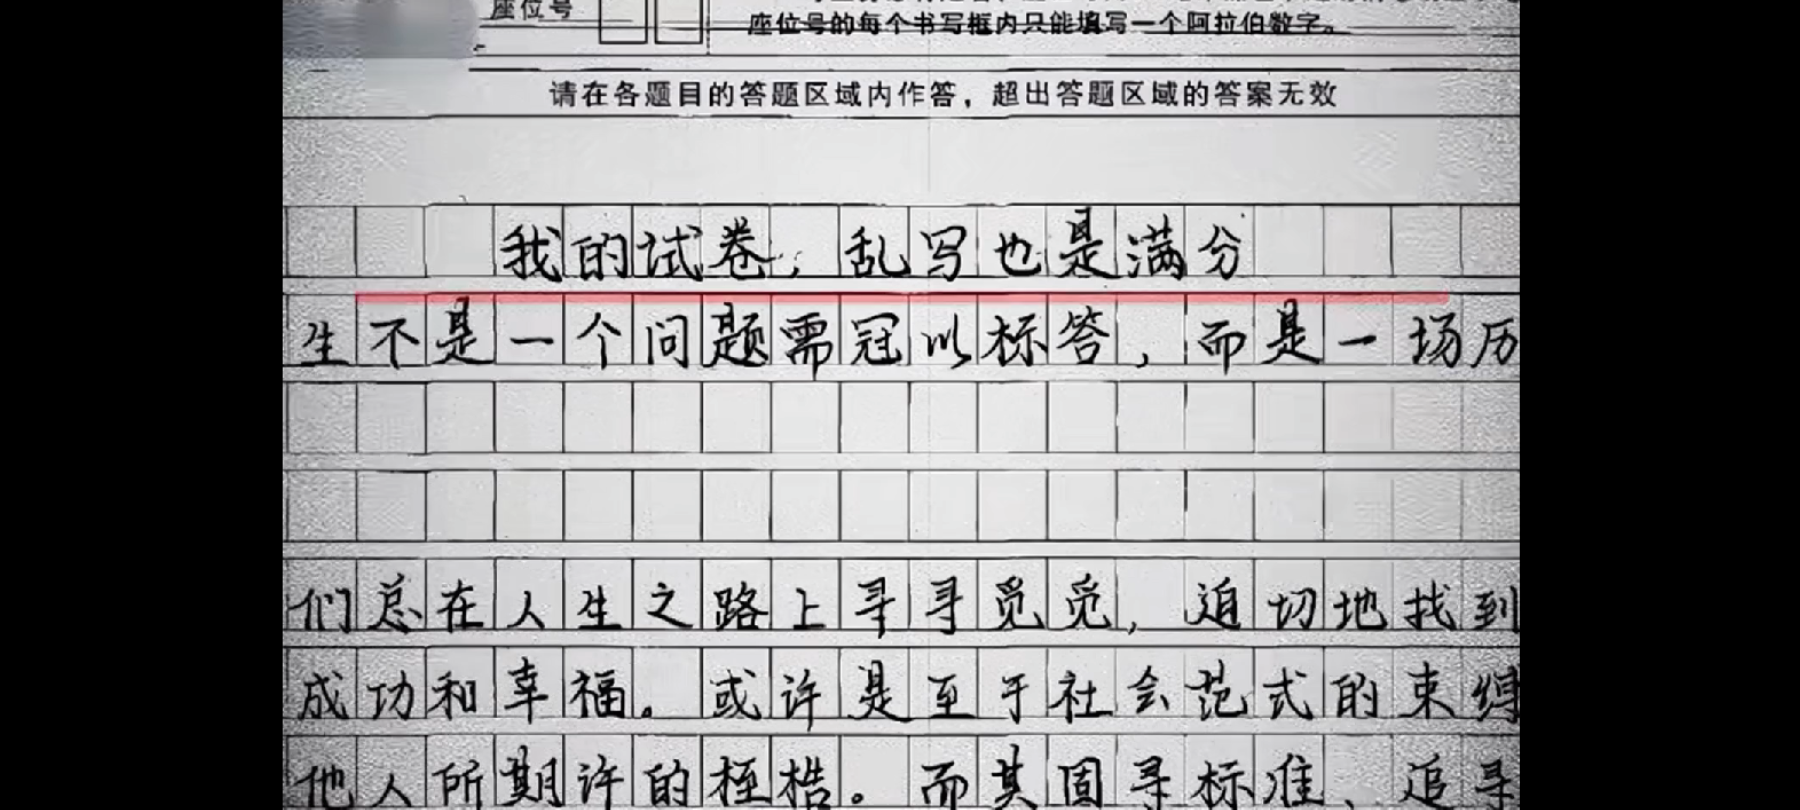 座位号
座位号的每个书写框内只能填写一个阿拉伯数字。
请在各题目的答题区域内作答，超出答题区域的答案无效
我的试卷，乱写也是满分
生不是一个问题需冠以标答，而是一场历
们总在人生之路上寻寻觅觅，迫切地找到
成功和幸福。或许是至于社会范式的束缚
他人所期许的桎梏。而其固寻标准、追寻